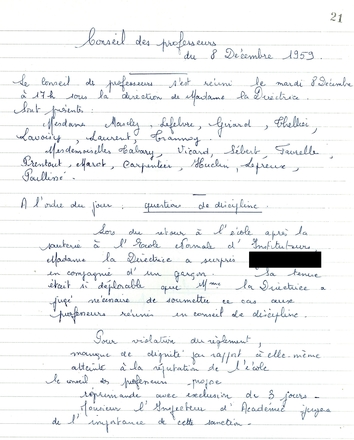 21
Conseil des professeurs
du 8 Décembre 1959.
Le conseil de professeurs s'est réuni le mardi 8 Décembre
à 17h sous la direction de Madame la Directrice.
Sont présents :
Mesdames Lefebvre, Girard, Thellier,
Laurent,
Mesdemoiselles Vicard, Sébert,
Prentout, Marot, Carpentier, Lepreux,
A l'ordre du jour : question de discipline.
Lors du retour à l'école après la
sauterie à l'Ecole Normale d'Instituteurs
Madame la Directrice a surpris
en compagnie d'un garçon. Sa tenue
était si déplorable que Mme la Directrice a
jugé nécessaire de soumettre ce cas aux
professeurs réunis en conseil de discipline.
Pour violation du règlement,
manque de dignité par rapport à elle-même
atteinte à la réputation de l'école
le conseil des professeurs propose
réprimande avec exclusion de 3 jours.
Monsieur l'Inspecteur d'Académie jugera
de l'importance de cette sanction.